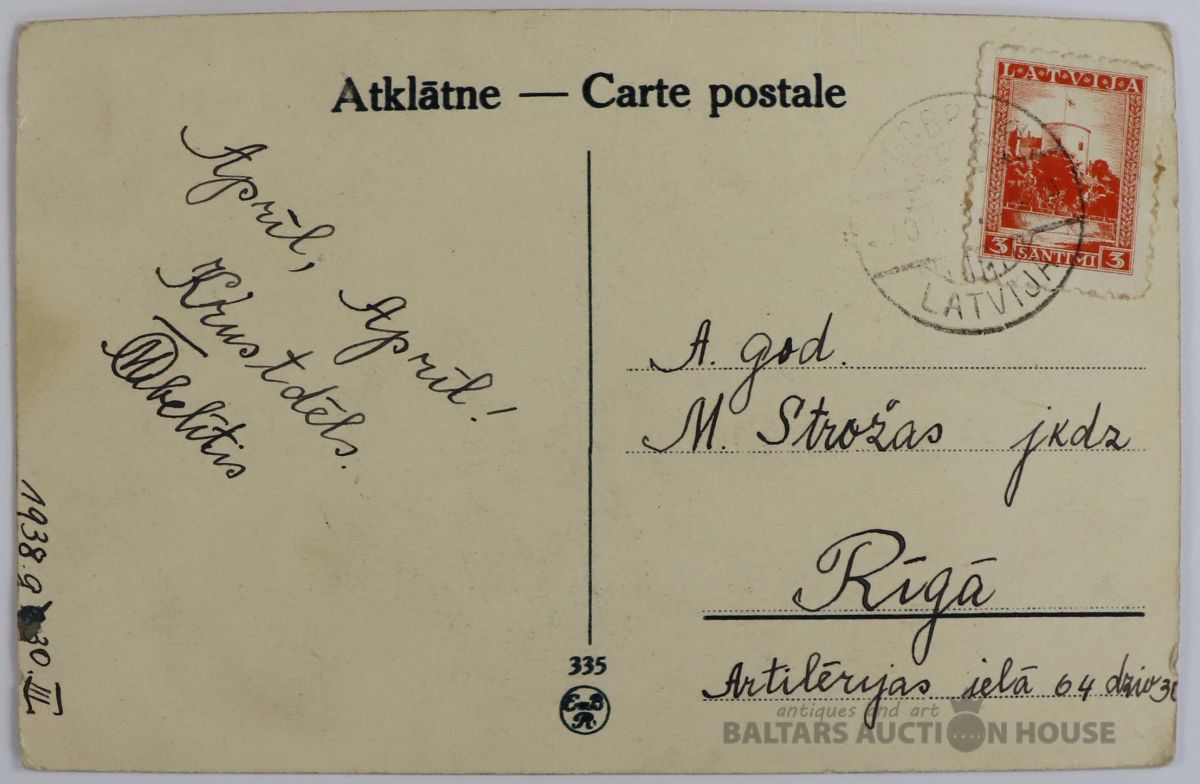 Atklātne — Carte postale
LATVIJA
3 SANTIMI 3
LATVIJA
Aprīl, Aprīl!
Krustdēls.
1938.g 30. III
A. god.
M. Strožas jkdz
Rīgā
Artilērijas ielā 64 dziv
335
antiques and art
BALTARS AUCTION HOUSE